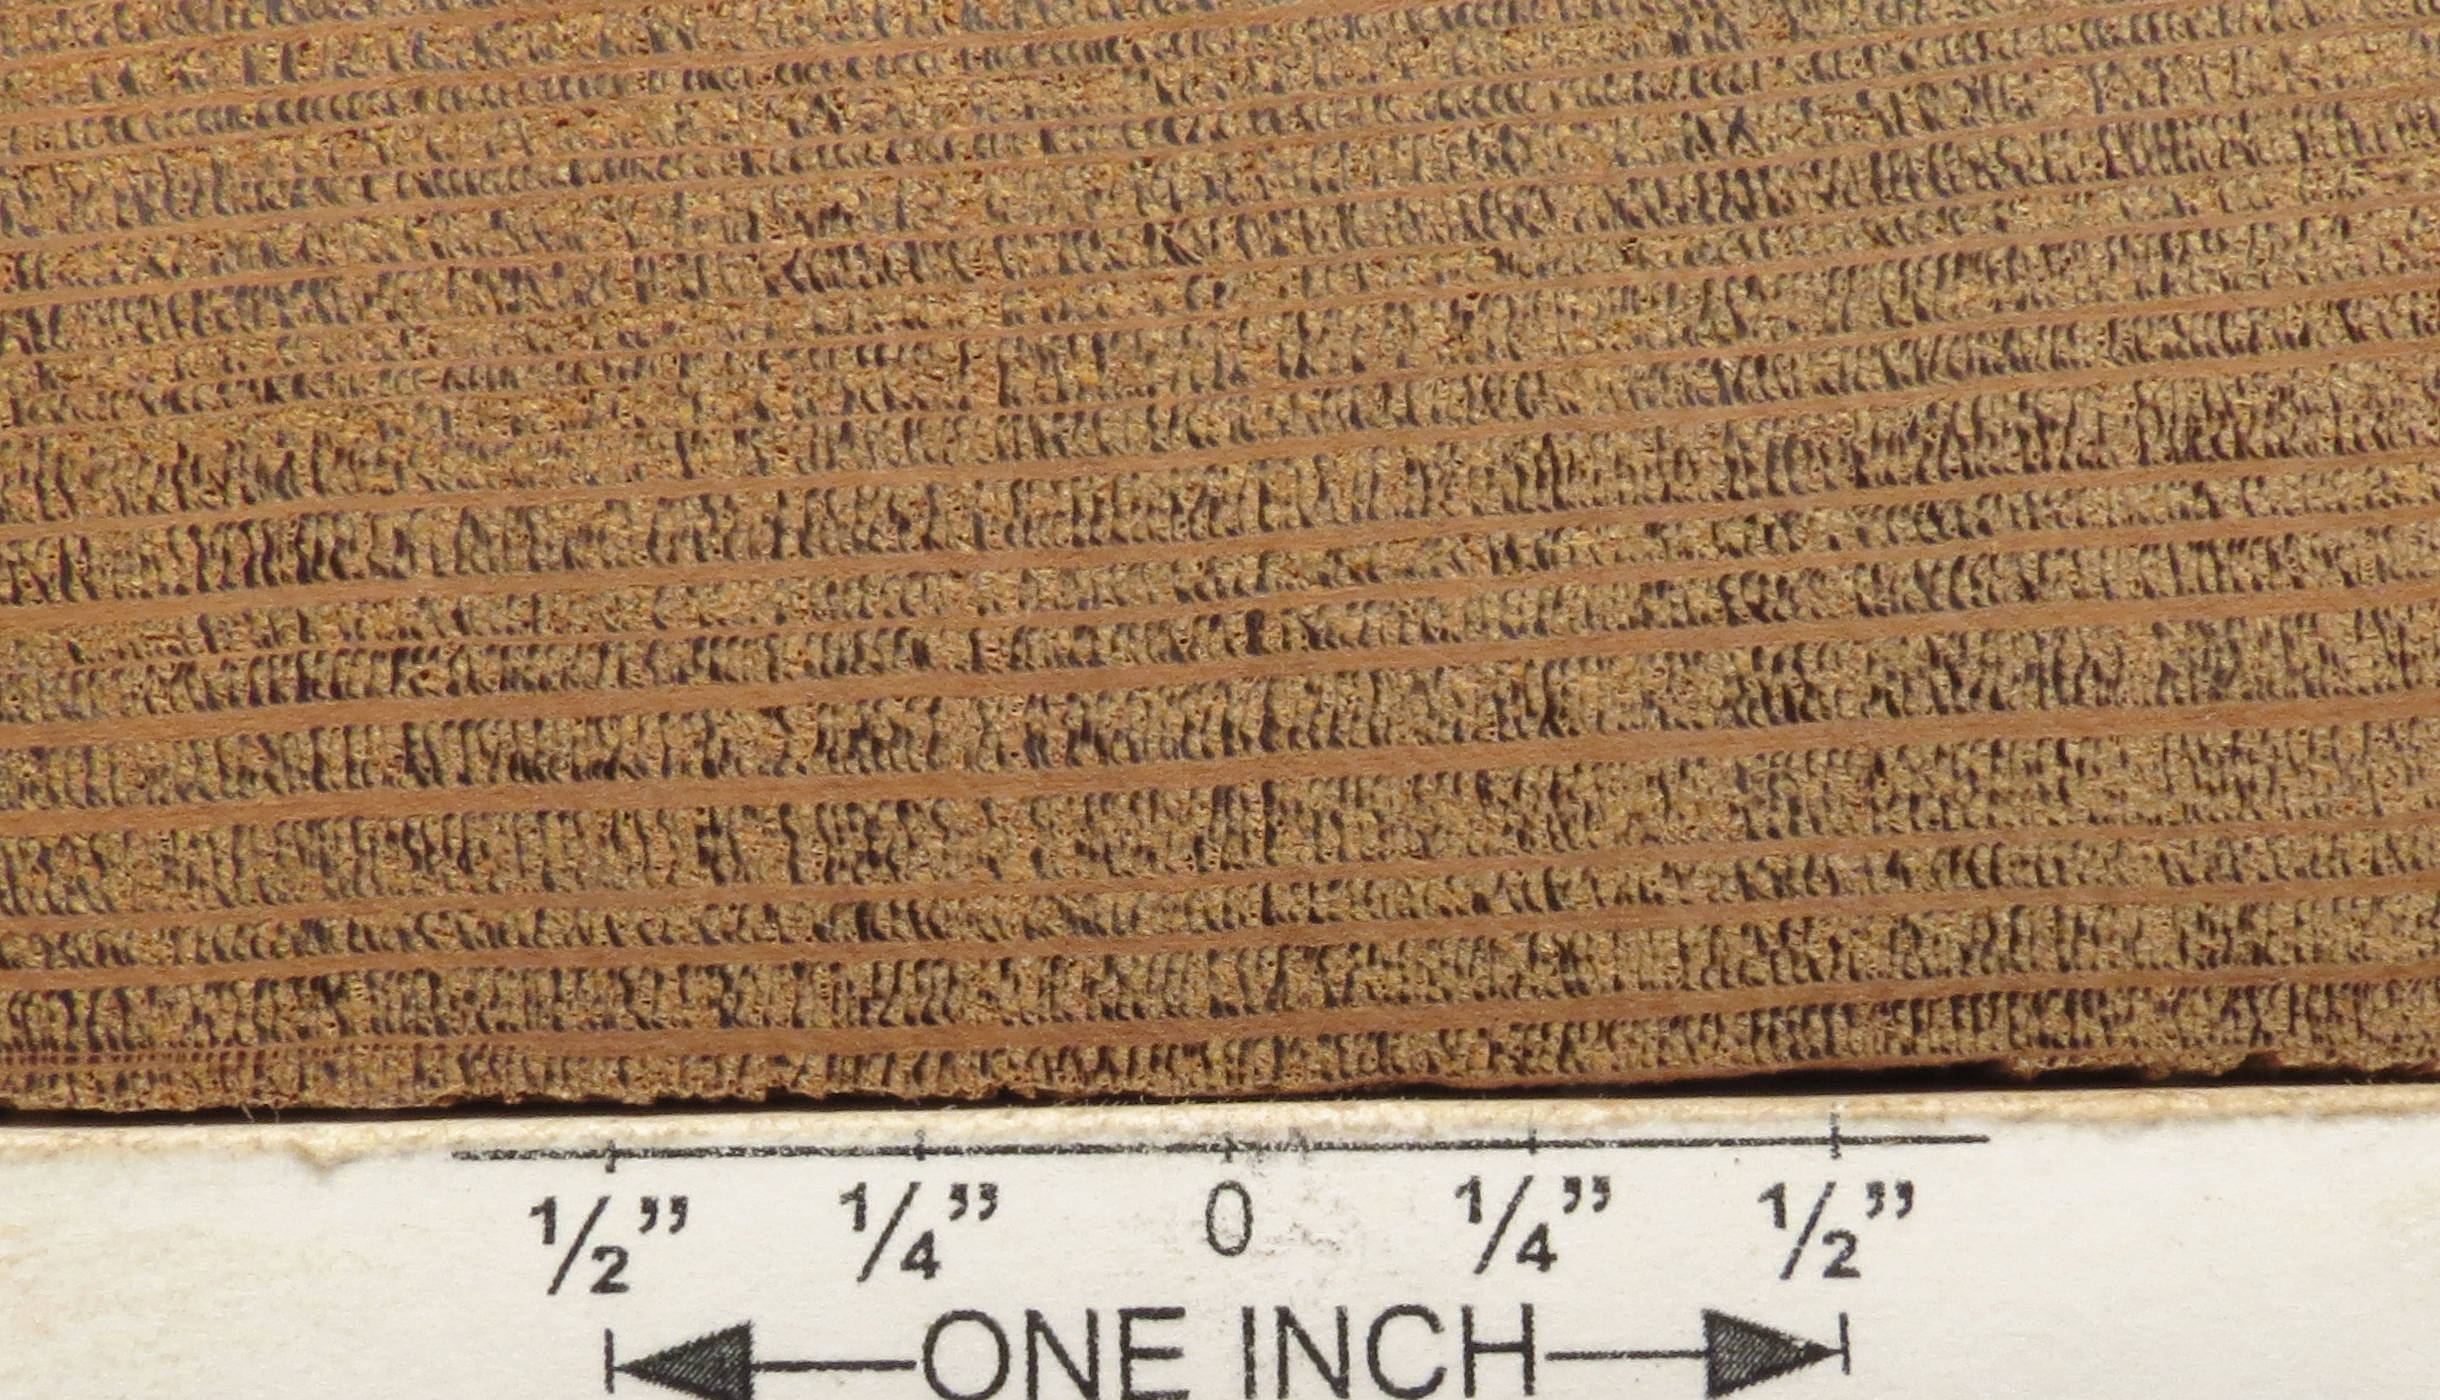 1/2” 1/4” 0 1/4” 1/2”
ONE INCH